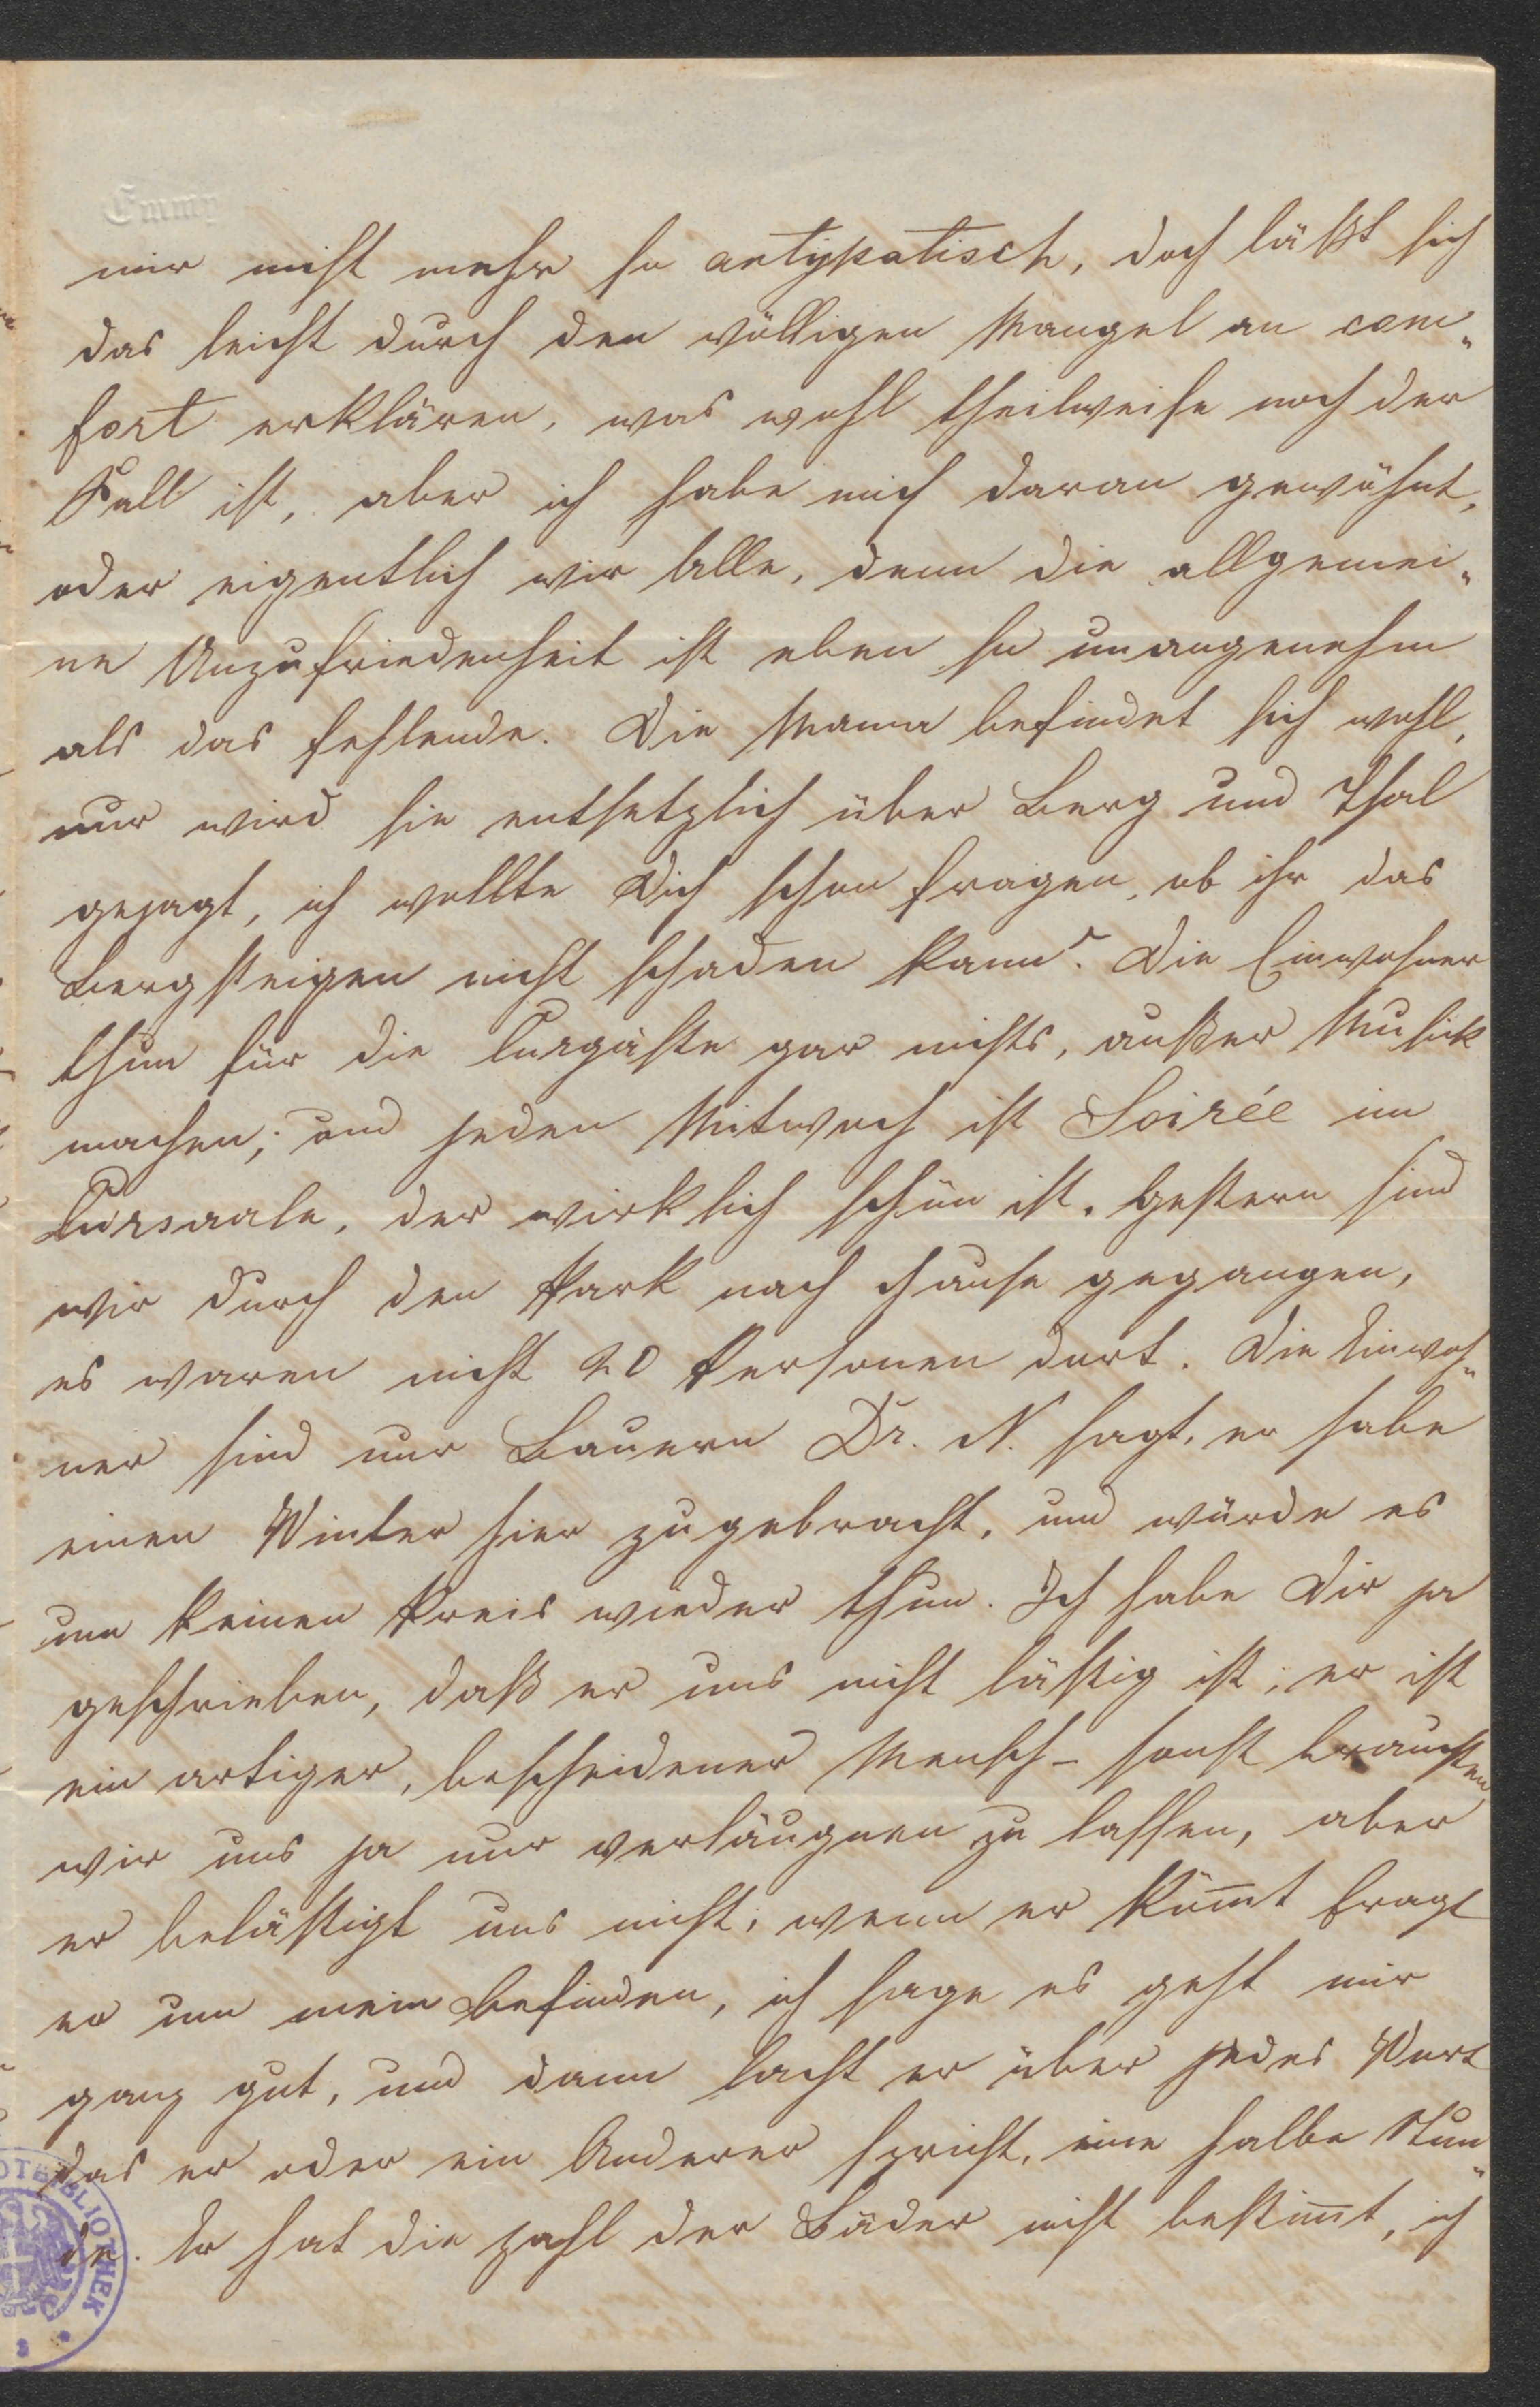 Emmy
mir nicht mehr so antypatisch, doch läßt sich
das leicht durch den völligen Mangel an com„
fort erklären, was wohl theilweise noch der
Fall ist, aber ich habe mich daran gewöhnt,
oder eigentlich wir Alle, denn die allgemei„
ne Unzufriedenheit ist eben so unangenehm
als das fehlende. Die Mama befindet sich wohl,
nur wird sie entsetzlich über Berg und Thal
gejagt, ich wollte Dich schon fragen, ob ihr das
Bergsteigen nicht schaden kann? Die Einwohner
thun für die Curgäste gar nichts, außer Musick
machen; und jeden Mitwoch ist Soirée im
Cursaale, der wirklich schön ist. Gestern sind
wir durch den Park nach Hause gegangen,
es waren nicht 20 Personen dort. Die Einwoh„
ner sind nur Bauern Dr. N. sagt, er habe
einen Winter hier zugebracht, und würde es
um keinen Preis wieder thun. Ich habe Dir ja
geschrieben, daß er uns nicht lästig ist; er ist
ein artiger, bescheidener Mensch – sonst brauchten
wir uns ja nur verläugnen zu lassen, aber
er belästigt uns nicht; wenn er kömt fragt
er um mein Befinden, ich sage es geht mir
ganz gut, und dann lacht er über jedes Wort
das er oder ein Anderer spricht, eine halbe Stun„
de. Er hat die Zahl der Bäder nicht bestimt, ich
BIBLIOTHEK